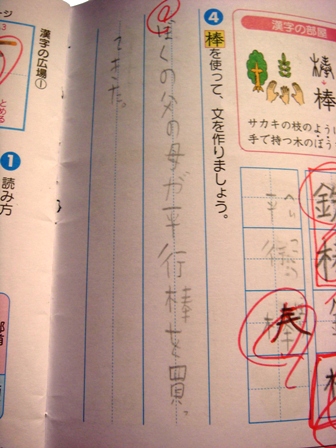 漢字の部屋
棒
サカキの枝のよう
手で持つ木のぼう
平
へい
棒
④棒を使って、文を作りましょう。
ぼくの父の母が平行棒を買っ
てきた。
漢字の広場①
とめる
❶
読み方